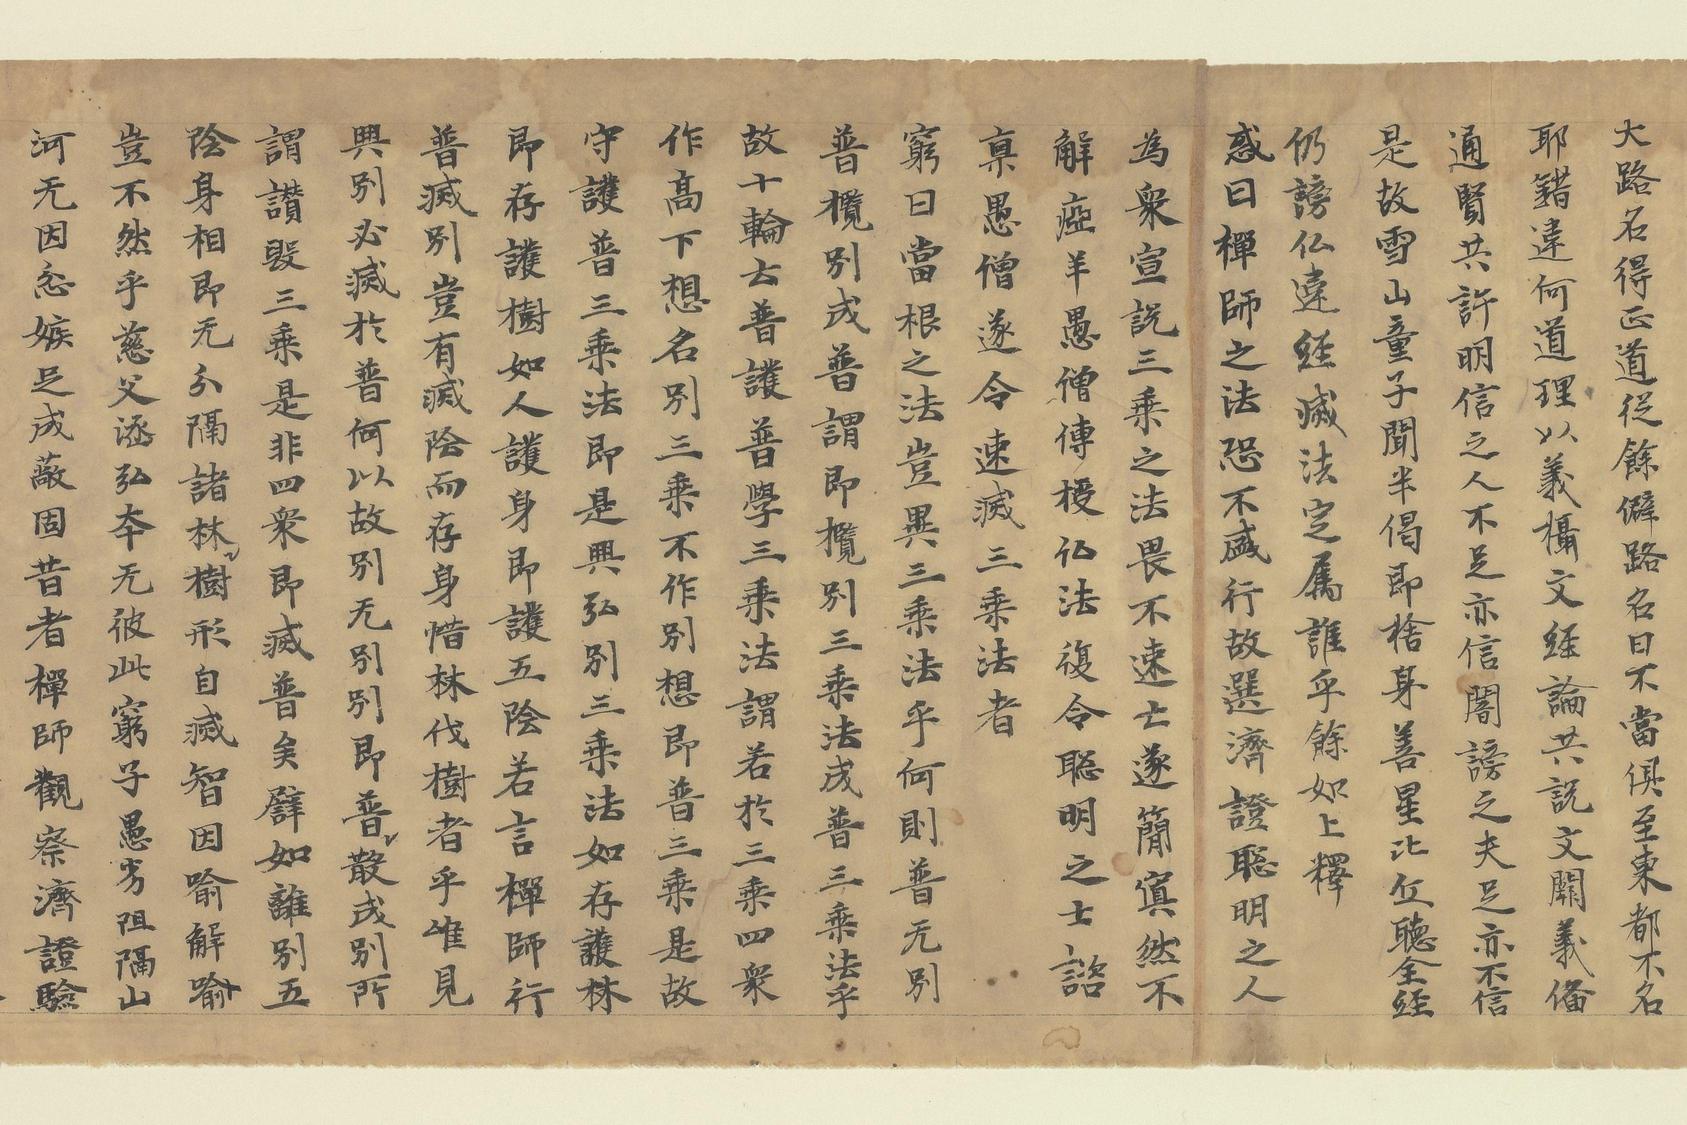 大路名得正道從餘僻路名曰不當俱至東都不名
耶錯違何道理以義攝文經論共說文闕義俻
通賢共許明信之人不足亦信闇謗之夫足亦不信
是故雪山童子聞半偈即捨身善星比丘聽全經
仍謗仏違經滅法定属誰乎餘如上釋
惑曰禪師之法恐不盛行故選濟證聡明之人
為衆宣說三乘之法畏不速士遂簡寘然不
解瘂羊愚僧傳授仏法復令聡明之士諮
禀愚僧遂令速滅三乘法者
窮曰當根之法豈異三乘法乎何則普无別
普攬別成普謂即攬別三乘法成普三乘法乎
故十輪云普護普學三乘法謂若於三乘四衆
作高下想名別三乘不作別想即普三乘是故
守護普三乘法即是興弘別三乘法如存護林
即存護樹如人護身即護五陰若言禪師行
普滅別豈有滅陰而存身惜林伐樹者乎唯見
興別必滅於普何以故別无別別即普〻散成別所
謂讃毀三乘是非四衆即滅普矣譬如離別五
陰身相即无分隔諸林〻樹形自滅智因喻解喻
豈不然乎慈父逐弘夲无彼此窮子愚劣阻隔山
河无因忿嫉足成蔽固昔者禪師觀察濟證驗